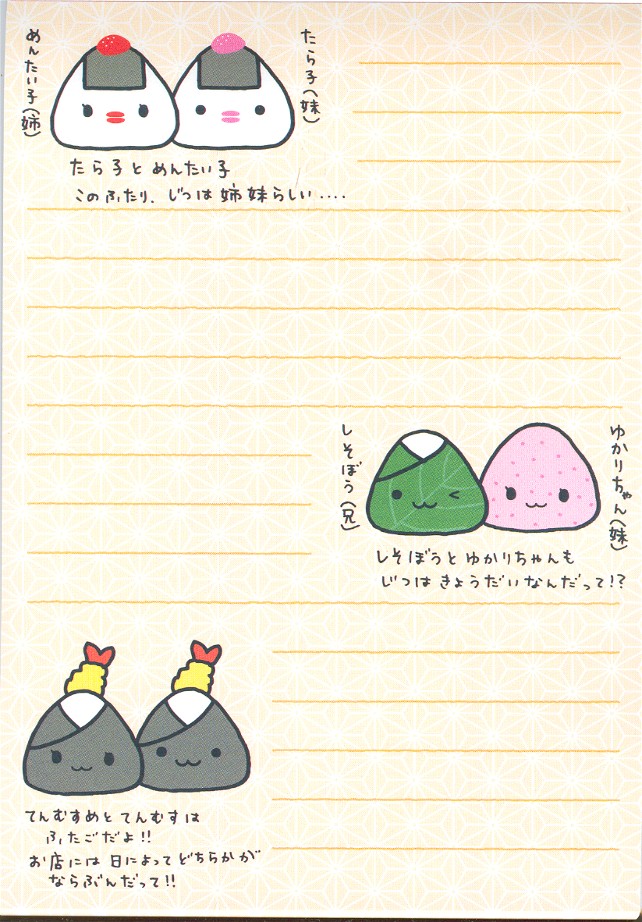 めんたい子(姉)
たら子(妹)
たら子とめんたい子
このふたり、じつは姉妹らしい‥‥
しそぼう(兄)
ゆかりちゃん(妹)
しそぼうとゆかりちゃんも
じつはきょうだいなんだって!?
てんむすめとてんむすは
ふたごだよ!!
お店には日によってどちらかが
ならぶんだって!!